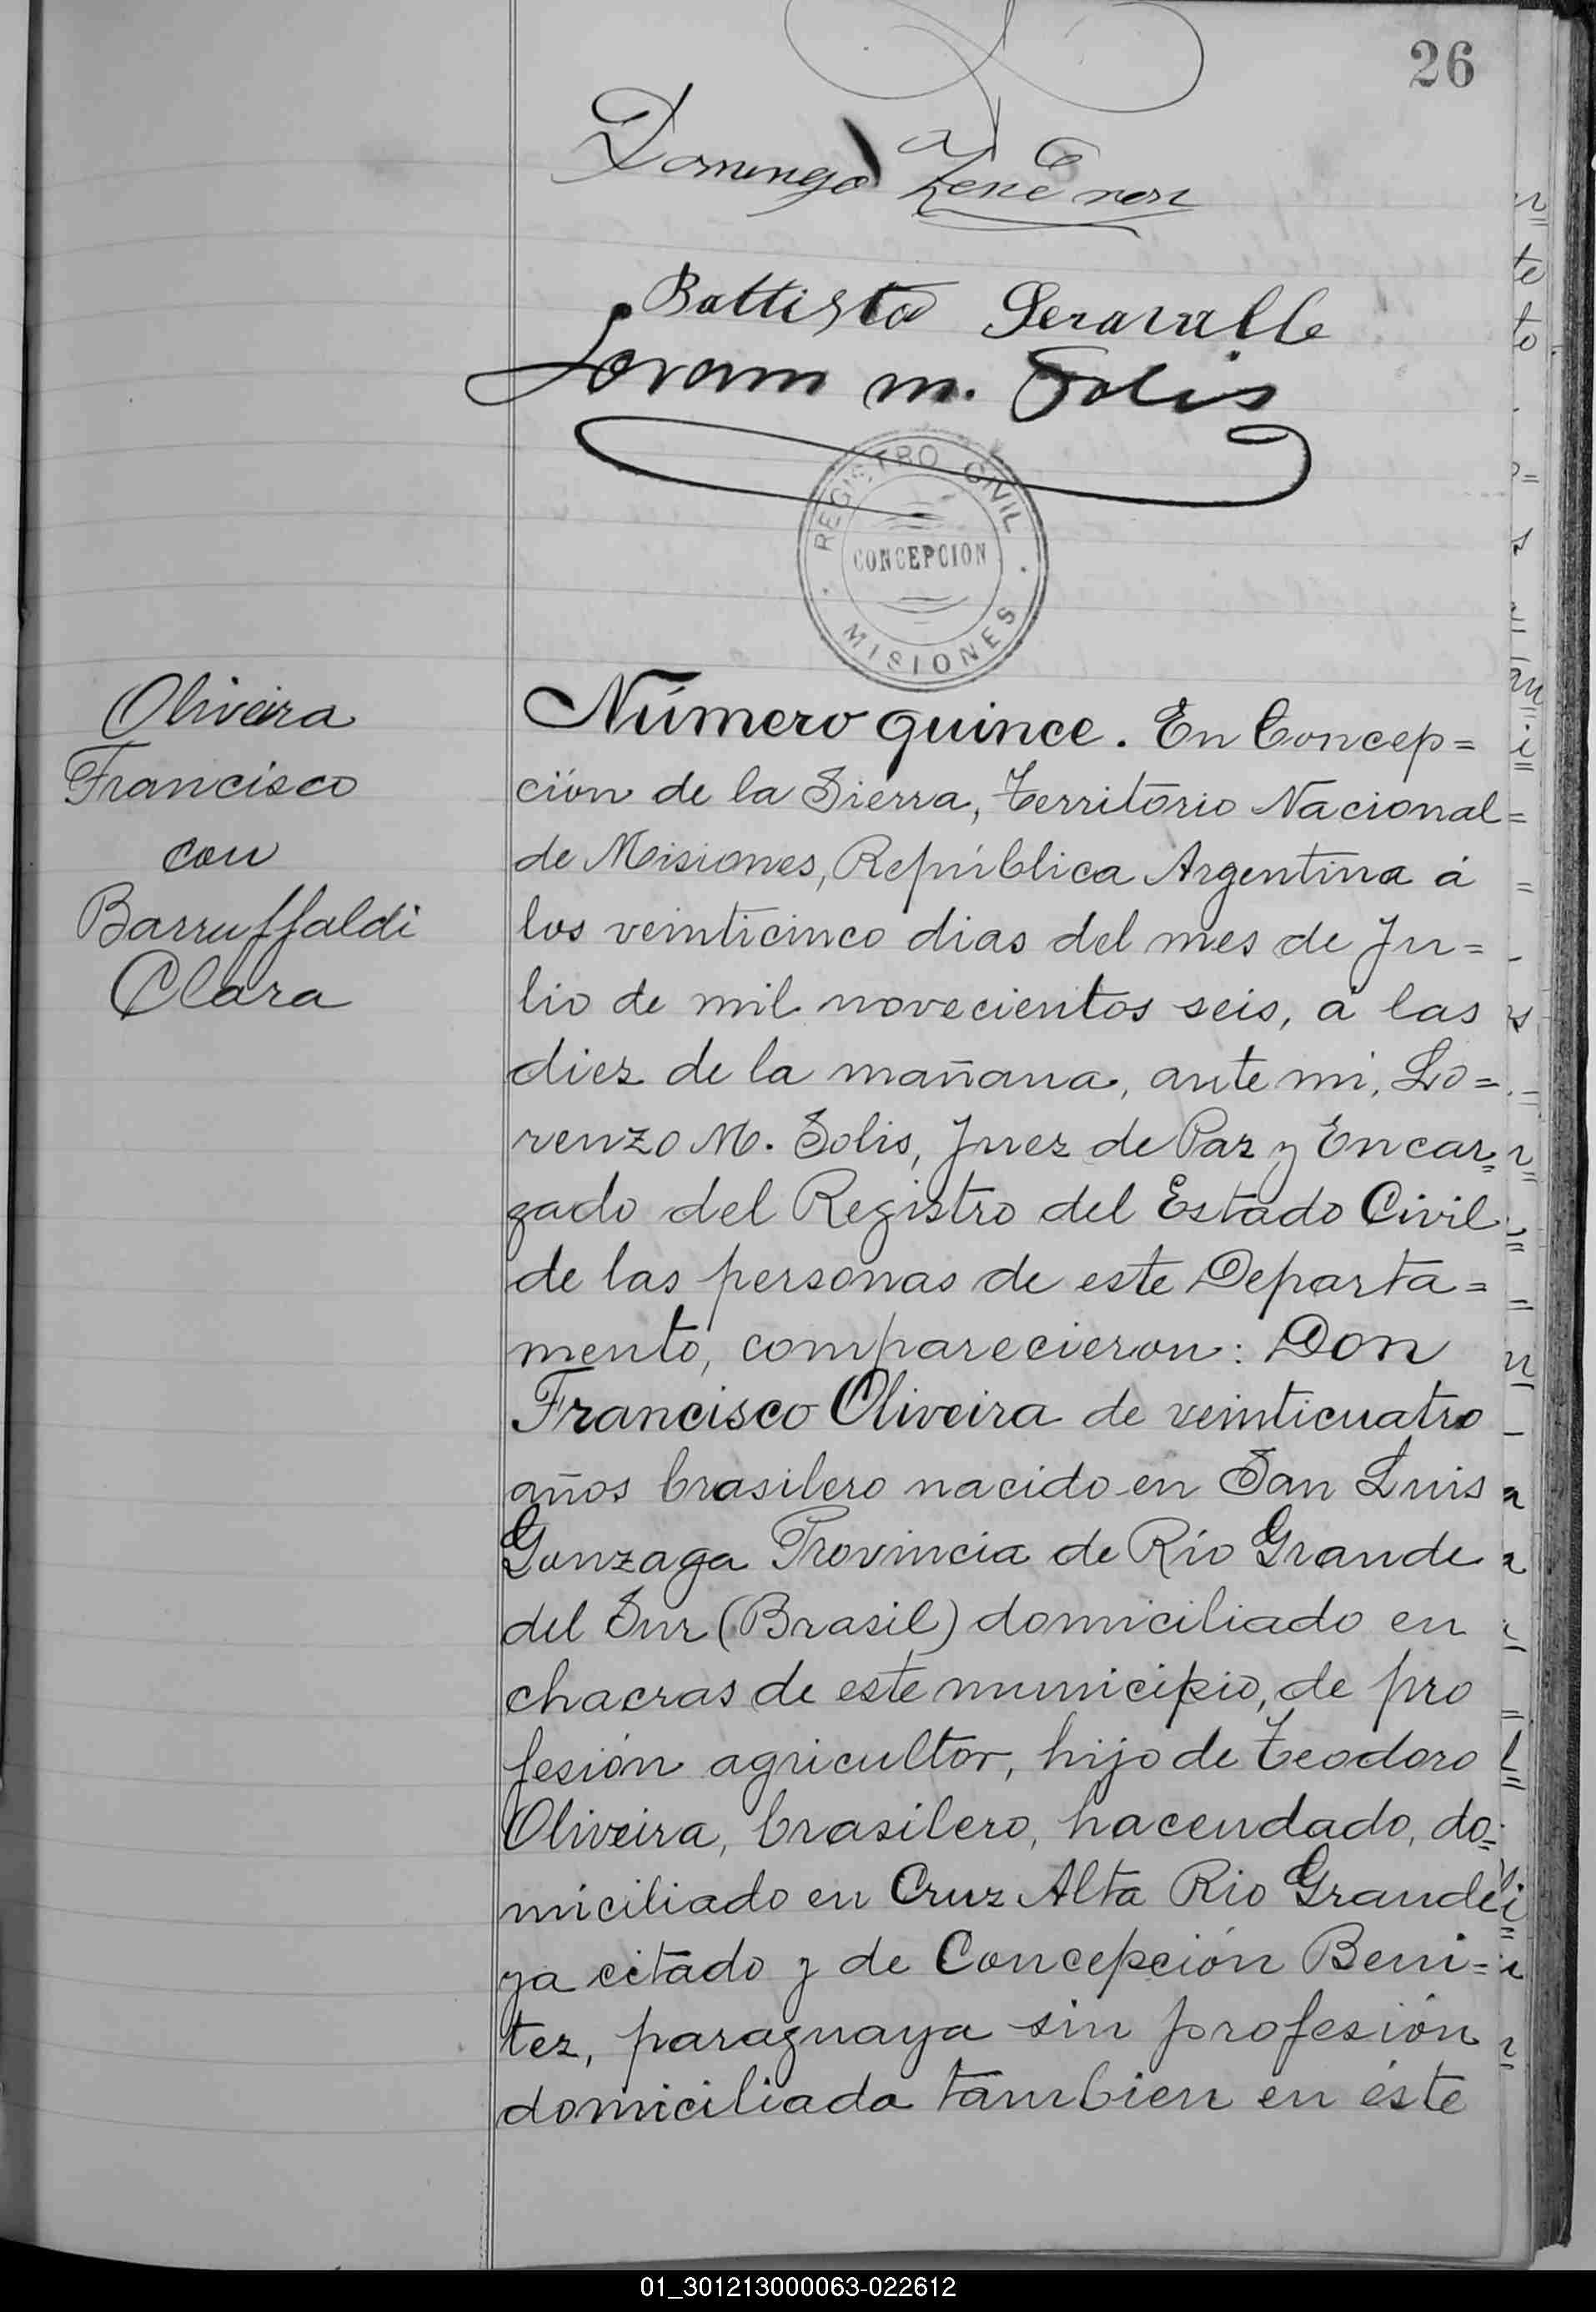 26
Domingo
Battista Seravalle
Lorenzo M. Solis
REGISTRO CIVIL
CONCEPCION
MISIONES
Oliveira
Francisco
con
Barruffaldi
Clara
Número quince. En Concep=
ción de la Sierra, Territorio Nacional
de Misiones, República Argentina á
los veinticinco dias del mes de Ju=
lio de mil novecientos seis, á las
diez de la mañana, ante mi, Lo=
renzo M. Solis, Juez de Paz y Encar=
gado del Registro del Estado Civil
de las personas de este Departa=
mento, comparecieron: Don
Francisco Oliveira de veinticuatro
años brasilero nacido en San Luis
Gonzaga Provincia de Rio Grande
del Sur (Brasil) domiciliado en
chacras de este municipio, de pro
fesión agricultor, hijo de Teodoro
Oliveira, brasilero, hacendado, do=
miciliado en Cruz Alta Rio Grande
ya citado y de Concepción Beni=
tez, paraguaya sin profesión
domiciliada tambien en éste
01_301213000063-022612